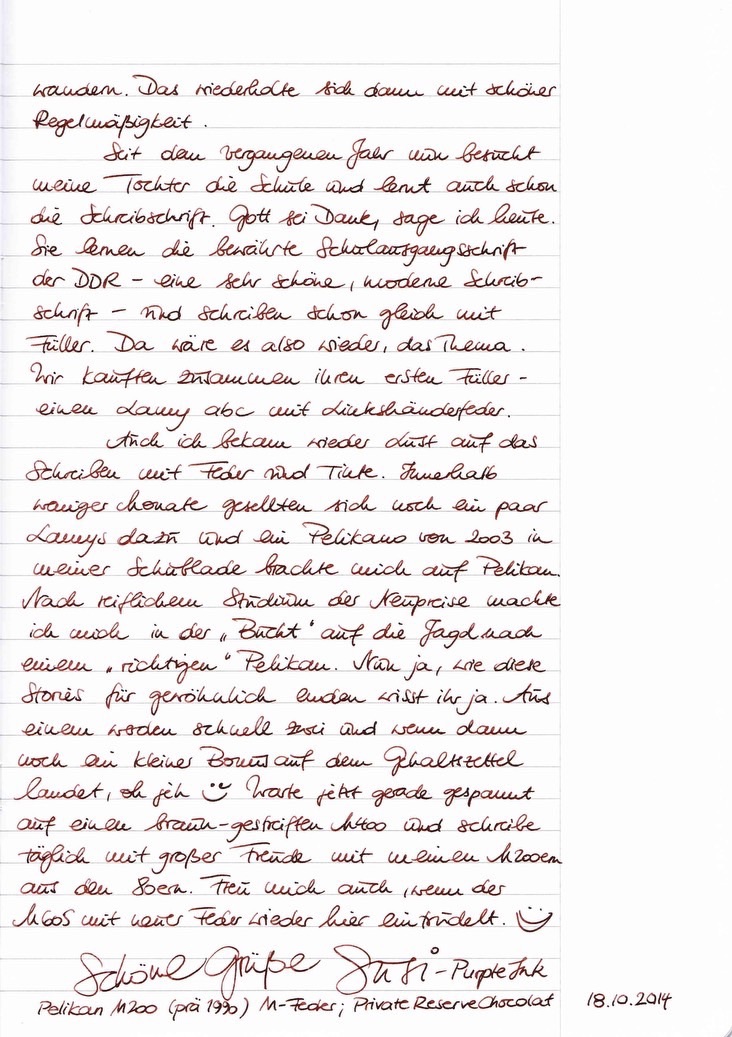 wandern. Das wiederholte sich dann mit schöner
Regelmäßigkeit.
Seit dem vergangenen Jahr nun besucht
meine Tochter die Schule und lernt auch schon
die Schreibschrift. Gott sei Dank, sage ich heute.
Sie lernen die bewährte Schulausgangsschrift
der DDR – eine sehr schöne, moderne Schreib-
schrift – und schreiben schon gleich mit
Füller. Da wäre es also wieder, das Thema.
Wir kauften zusammen ihren ersten Füller –
einen Lamy abc mit Linkshänderfeder.
Auch ich bekam wieder Lust auf das
Schreiben mit Feder und Tinte. Innerhalb
weniger Monate gesellten sich noch ein paar
Lamys dazu und ein Pelikano von 2003 in
meiner Schublade brachte mich auf Pelikan.
Nach reiflichem Studium der Neupreise machte
ich mich in der „Bucht“ auf die Jagd nach
einem „richtigen“ Pelikan. Nun ja, wie diese
Stories für gewöhnlich enden wisst ihr ja. Aus
einem werden schnell zwei und wenn dann
noch ein kleiner Bonus auf dem Gehaltszettel
landet, oh jeh Warte jetzt gerade gespannt
auf einen braun-gestreiften M400 und schreibe
täglich mit großer Freude mit meinen M200ern
aus den 80ern. Freu mich auch, wenn der
M605 mit neuer Feder wieder hier eintrudelt.
Schöne Grüße Susi - Purple Ink
Pelikan M200 (prä 1990) M-Feder; Private Reserve Chocolat 18.10.2014